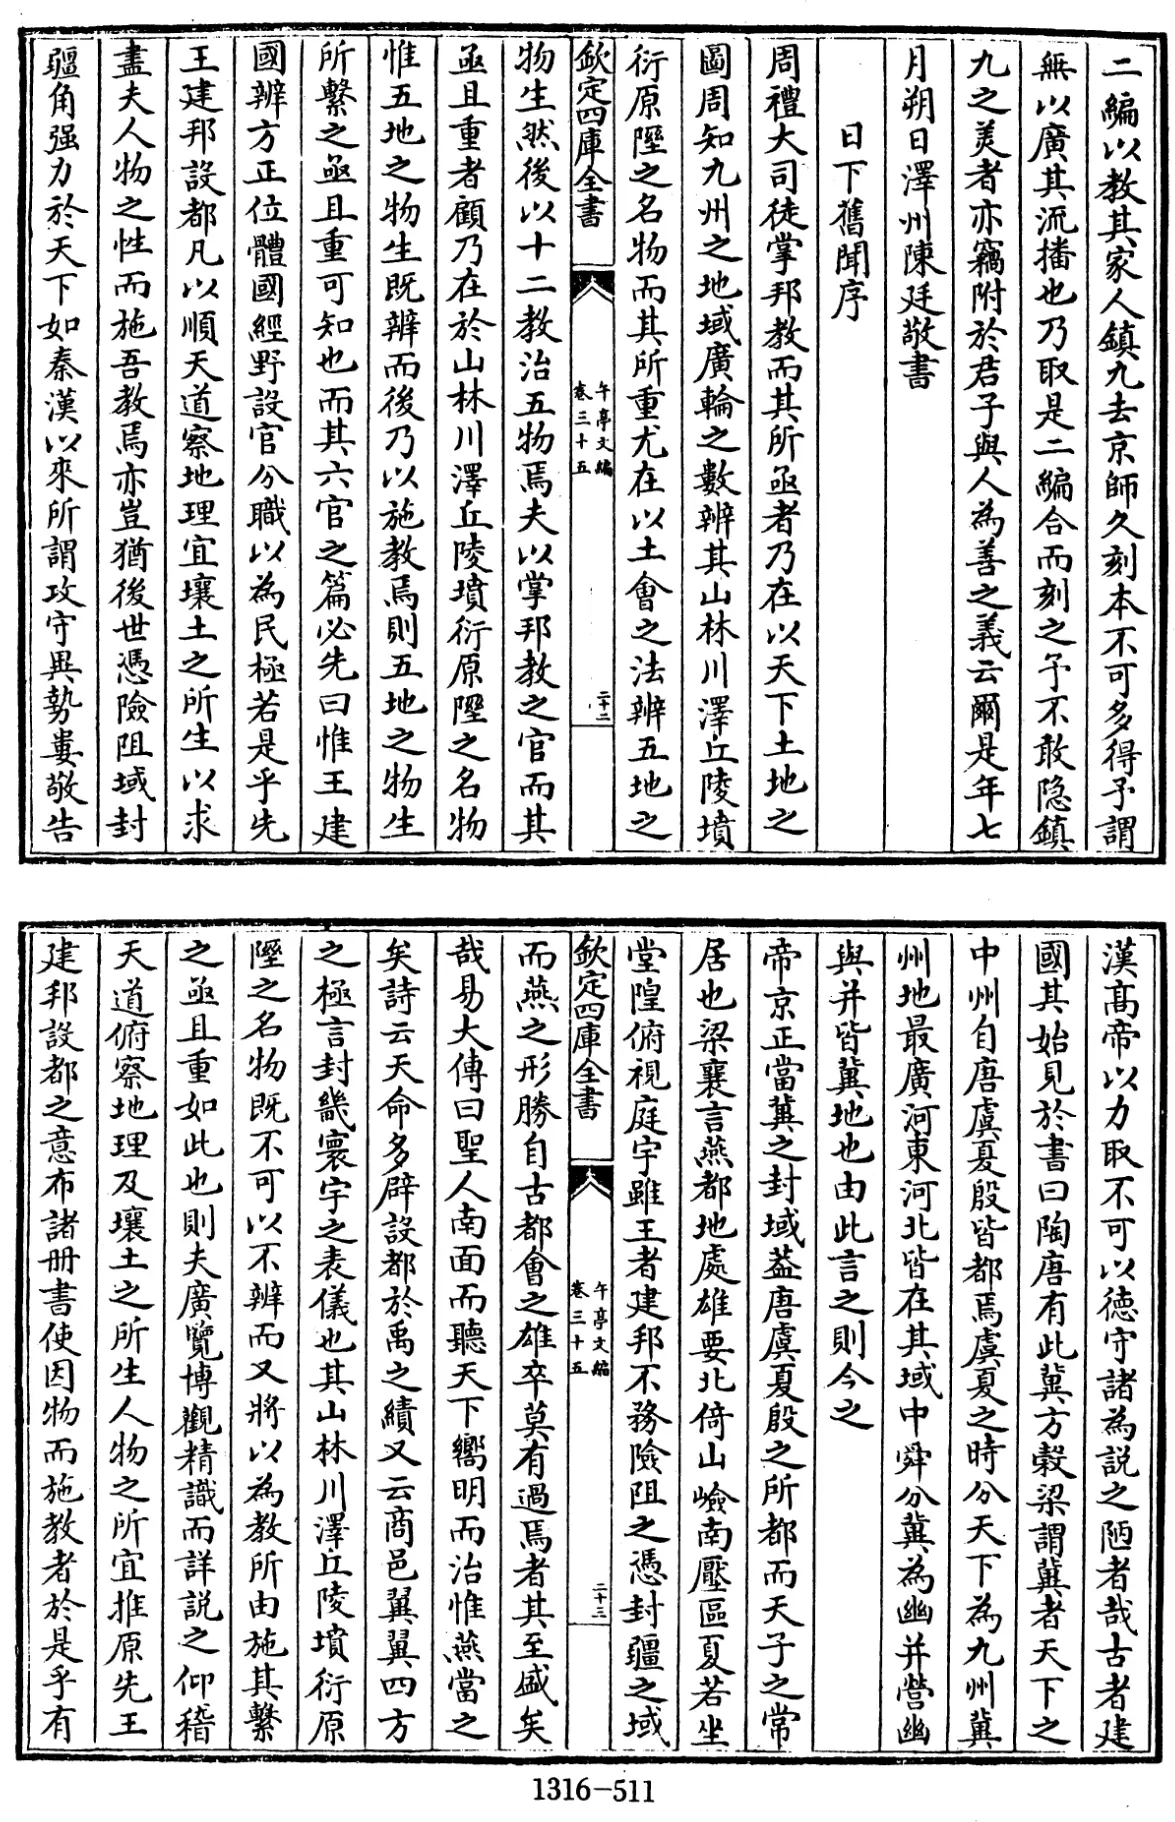 二編以教其家人鎮九去京師久刻本不可多得予謂
無以廣其流播也乃取是二編合而刻之予不敢隐鎮
九之美者亦竊附於君子與人為善之義云爾是年七
月朔日澤州陳廷敬書
日下舊聞序
周禮大司徒掌邦教而其所亟者乃在以天下土地之
圖周知九州之地域廣輪之數辨其山林川澤丘陵墳
衍原隰之名物而其所重尤在以土會之法辨五地之
欽定四庫全書
午亭文編
卷三十五
二十二
物生然後以十二教治五物焉夫以掌邦教之官而其
亟且重者顧乃在於山林川澤丘陵墳衍原隰之名物
惟五地之物生既辨而後乃以施教焉則五地之物生
所繫之亟且重可知也而其六官之篇必先曰惟王建
國辨方正位體國經野設官分職以為民極若是乎先
王建邦設都凡以順天道察地理宜壤土之所生以求
盡夫人物之性而施吾教焉亦豈猶後世憑險阻域封
疆角强力於天下如秦漢以來所謂攻守異勢婁敬告
漢髙帝以力取不可以德守諸為說之陋者哉古者建
國其始見於書曰陶唐有此冀方穀梁謂冀者天下之
中州自唐虞夏殷皆都焉虞夏之時分天下為九州冀
州地最廣河東河北皆在其域中舜分冀為幽并營幽
與并皆冀地也由此言之則今之
帝京正當冀之封域葢唐虞夏殷之所都而天子之常
居也梁襄言燕都地處雄要北倚山嶮南壓區夏若坐
堂隍俯視庭宇雖王者建邦不務險阻之憑封疆之域
欽定四庫全書
午亭文編
卷三十五
二十三
而燕之形勝自古都會之雄卒莫有過焉者其至盛矣
哉易大傳曰聖人南面而聽天下嚮明而治惟燕當之
矣詩云天命多辟設都於禹之績又云商邑翼翼四方
之極言封畿寰宇之表儀也其山林川澤丘陵墳衍原
隰之名物既不可以不辨而又將以為教所由施其繫
之亟且重如此也則夫廣覽博觀精識而詳說之仰稽
天道俯察地理及壤土之所生人物之所宜推原先王
建邦設都之意布諸册書使因物而施教者於是乎有
1316-511